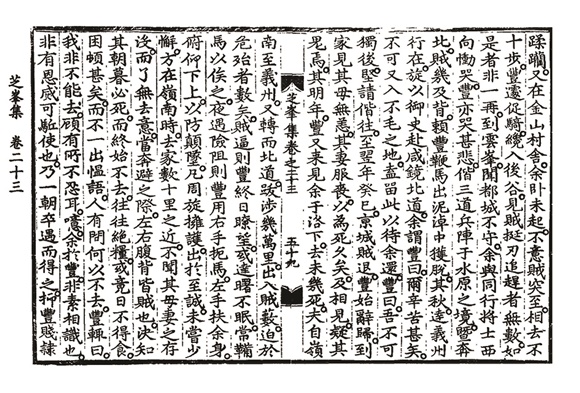 蹂躪又在金山村舍余卧未起不意賊突至相去不
十步豐遽促騎纔入後谷見賊挺刃追趕者無數如
是者非一再到雲峯聞都城不守余與同行將士西
向慟哭豐亦哭甚悲偕三道兵陣于水原之境曁奔
北賊幾及背賴豐鞭馬出泥淖中獲脫其秋達義州
行在旋以御史赴咸鏡北道余謂豐曰爾辛苦甚矣
不可又入不毛之地盍留此以待余還豐曰吾不可
獨後堅請偕往至翌年癸巳京城賊退豐始辭歸到
家見其母無恙其妻服喪以爲死久矣及相見疑其
鬼焉其明年豐又來見余于洛下去未幾死夫自嶺
芝峯集卷之二十三 五十九
南至義州又轉而北道跋涉幾萬里出入賊藪迫於
危殆者數矣賊逼則豐終日瞭望或達曙不眠常鞴
馬以俟之夜遇險阻則豐用右手扼馬左手扶余身
俯仰下上以防顛墜凡周旋擁護出於至誠未嘗少
懈方在嶺南時去家數十里之近不聞其母妻之存
沒而了無去意當奔避之際左右腹背皆賊也決知
其朝暮必死而終始不去往往絶糧或竟日不得食
困頓甚矣而不一出慍語人有問何以不去豐輒曰
我非不能去顧有所不忍耳噫余於豐非素相識也
非有恩感可駈使也乃一朝卒遇而得之抑豐賤隷
芝峯集 卷二十三